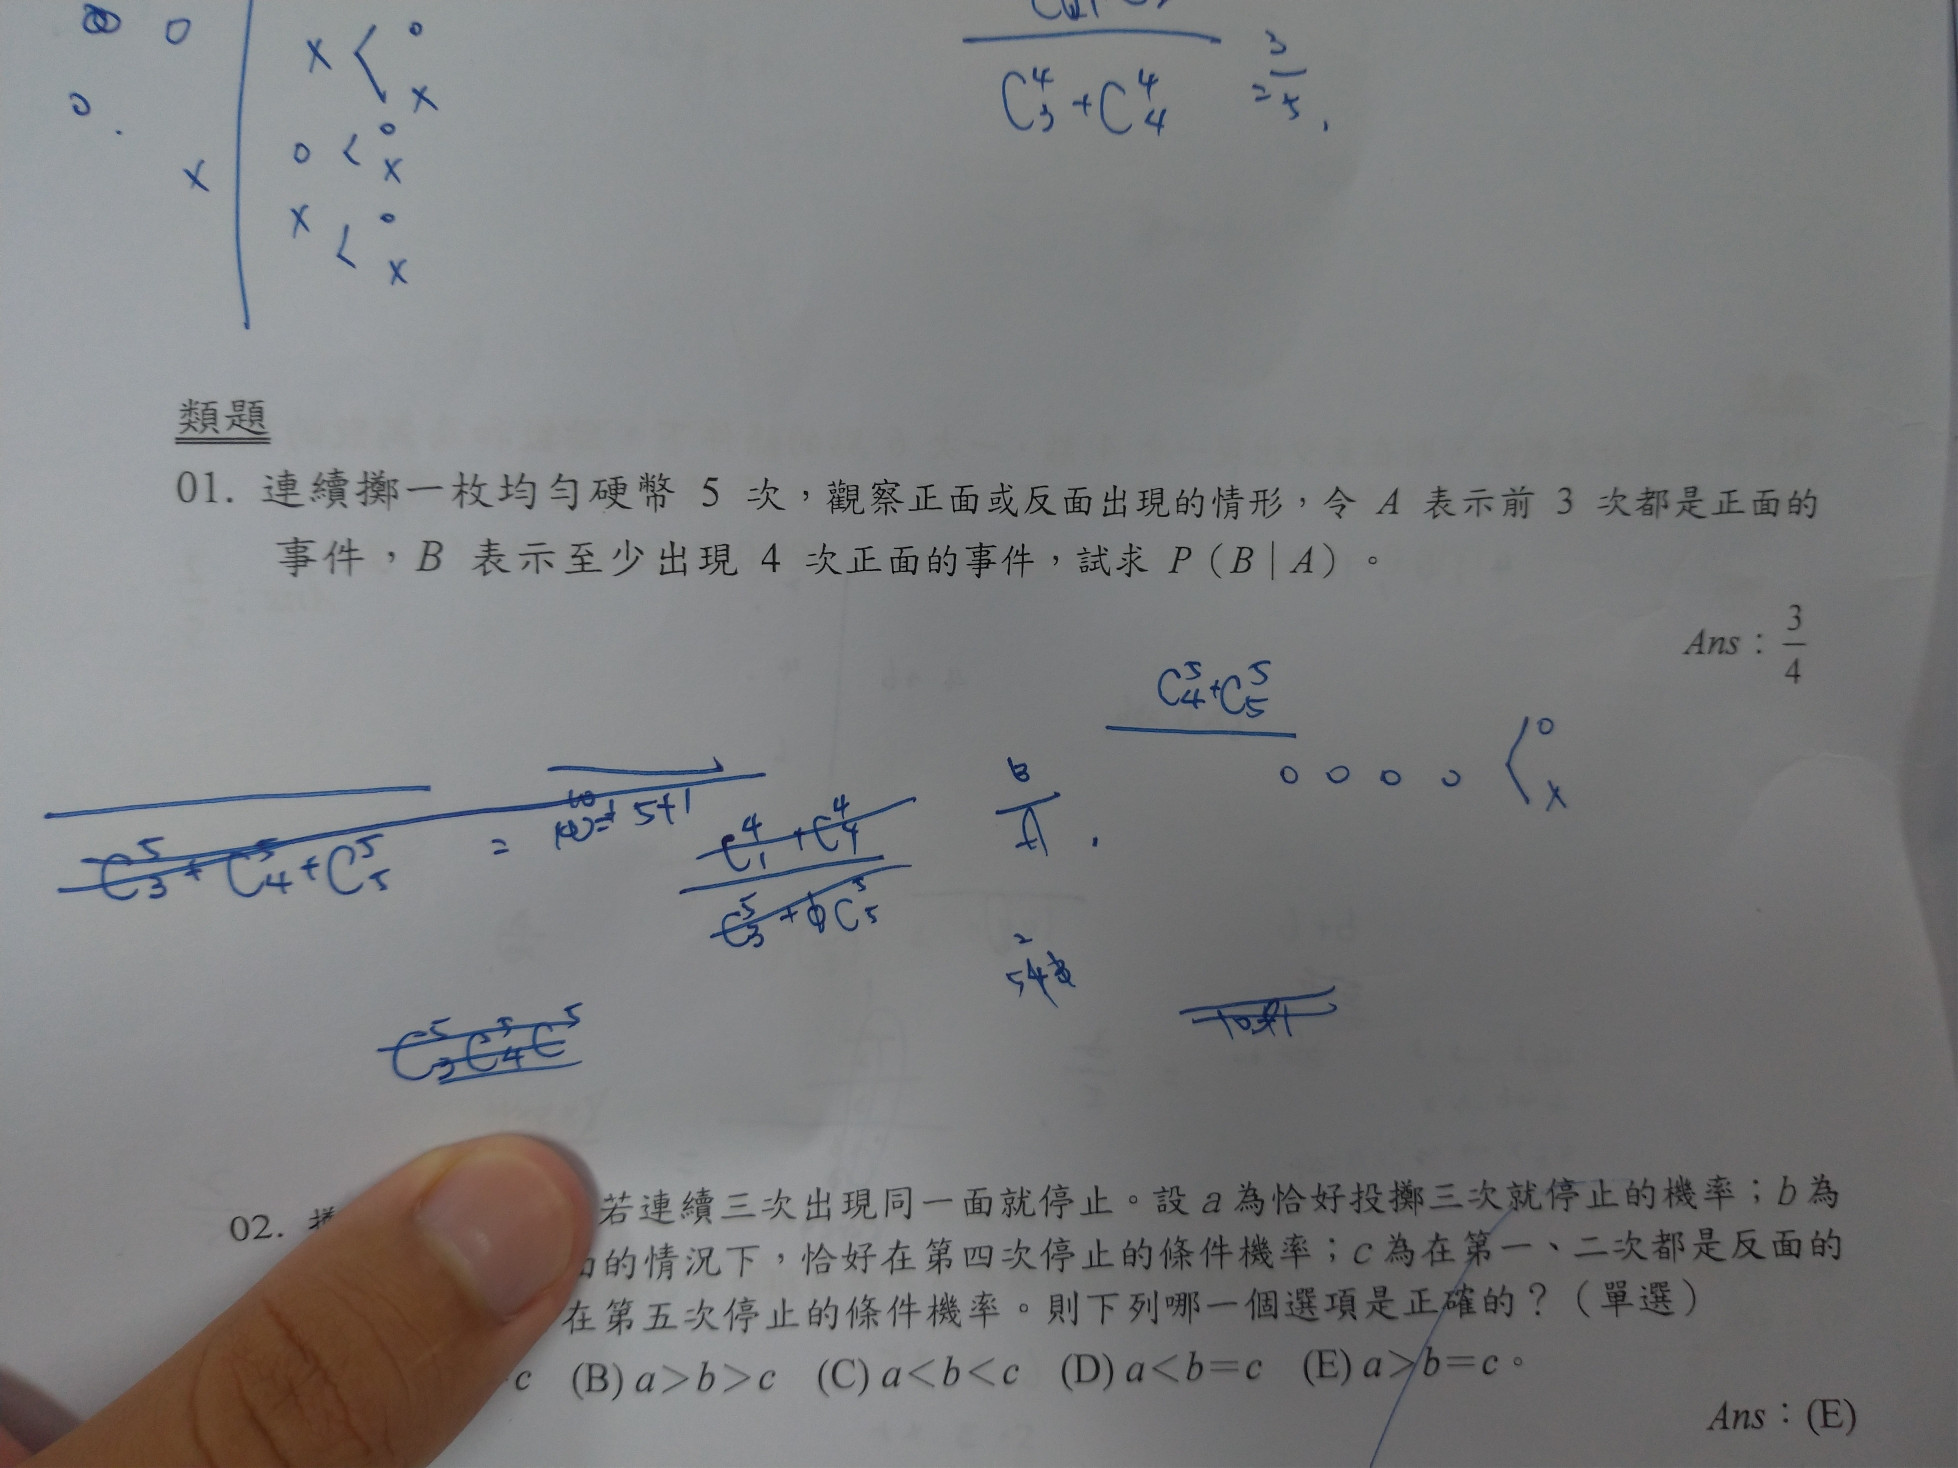 o
x < o
x
o
o < o
x
x
x < o
x
C⁴₃+C⁴₄
=3/5,
類題
01. 連續擲一枚均勻硬幣 5 次，觀察正面或反面出現的情形，令 A 表示前 3 次都是正面的
事件，B 表示至少出現 4 次正面的事件，試求 P（B | A）。
Ans：3/4
C⁵₄+C⁵₅
o o o o < o
x
C⁵₃+C⁵₄+C⁵₅ = 5+1
C⁴₁+C⁴₄
C⁵₃+C⁵₅
B
A
C⁵₃C⁵₄C⁵
02.
若連續三次出現同一面就停止。設 a 為恰好投擲三次就停止的機率；b 為
的情況下，恰好在第四次停止的條件機率；c 為在第一、二次都是反面的
在第五次停止的條件機率。則下列哪一個選項是正確的？（單選）
c (B) a>b>c (C) a<b<c (D) a<b=c (E) a>b=c。
Ans：(E)